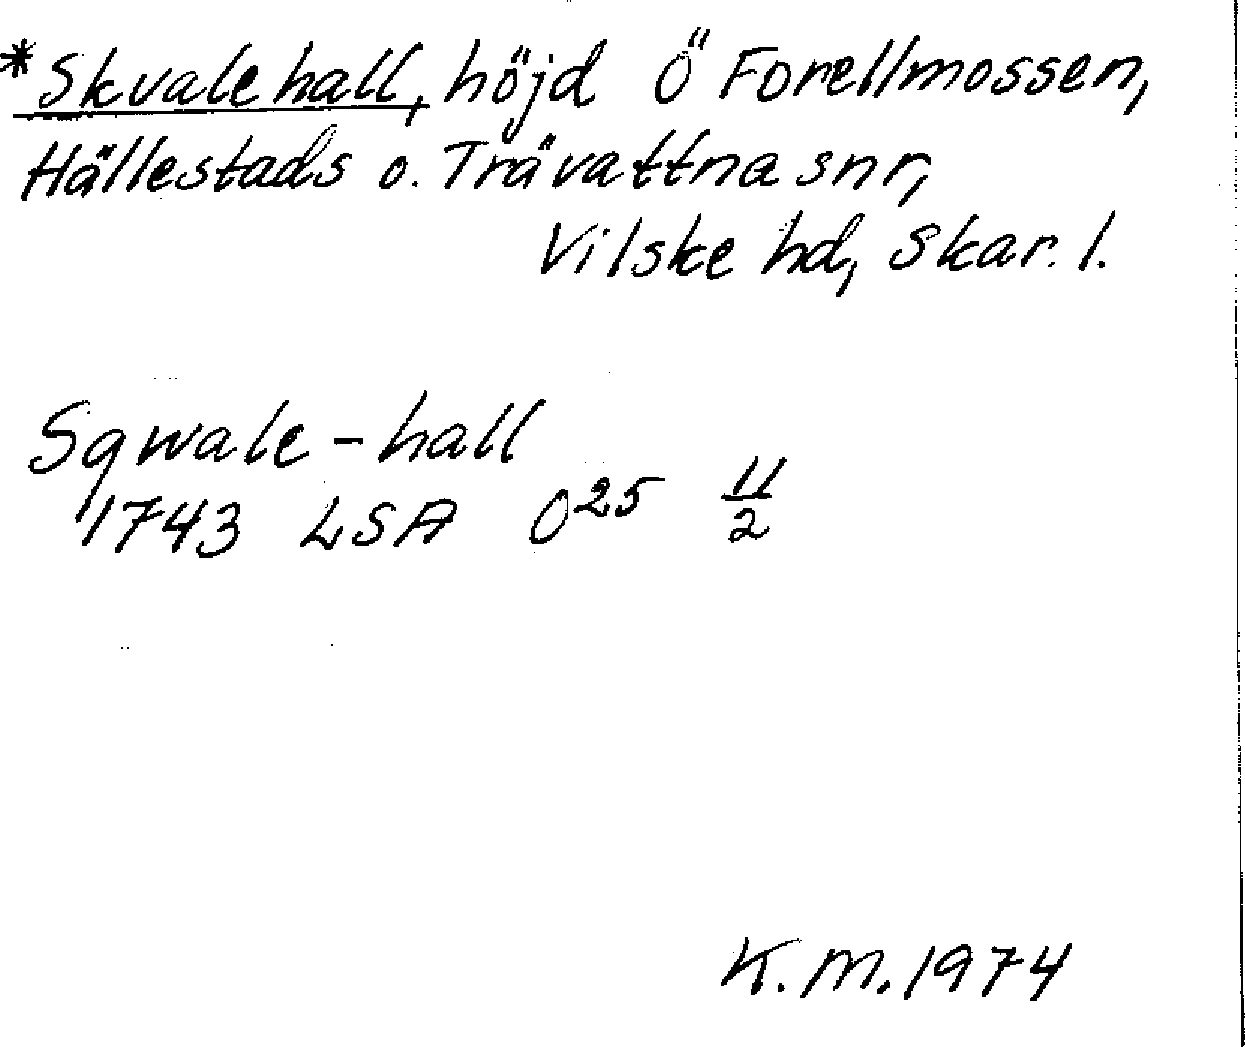 *Skvalehall, höjd Ö Forellmossen,
Hällestads o. Trävattna snr,
Vilske hd, Skar. l.
Sqwale-hall
1743 LSA O²⁵ 11/2
K.M. 1974